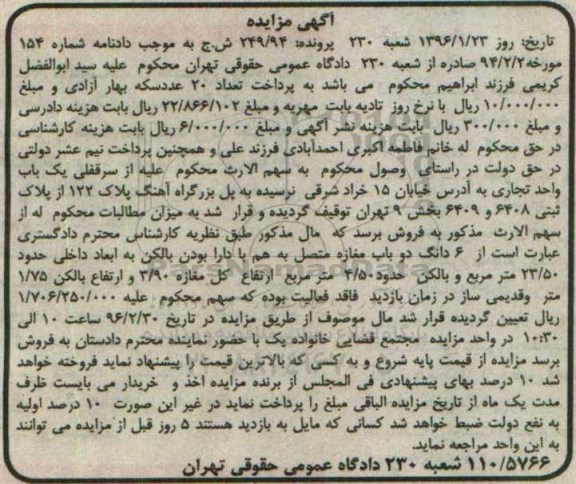 آگهی مزایده
تاریخ: روز ۱۳۹۶/۱/۲۳ شعبه ۲۳۰ پرونده: ۲۴۹/۹۴ ش.ج به موجب دادنامه شماره ۱۵۴
مورخه ۹۴/۲/۲ صادره از شعبه ۲۳۰ دادگاه عمومی حقوقی تهران محکوم علیه سید ابوالفضل
کریمی فرزند ابراهیم محکوم می باشد به پرداخت تعداد ۲۰ عددسکه بهار آزادی و مبلغ
۱۰/۰۰۰/۰۰۰ ریال با نرخ روز تادیه بابت مهریه و مبلغ ۲۲/۸۶۶/۱۰۲ ریال بابت هزینه دادرسی
و مبلغ ۳۰۰/۰۰۰ ریال بابت هزینه نشر آگهی و مبلغ ۶/۰۰۰/۰۰۰ ریال بابت هزینه کارشناسی
در حق محکوم له خانم فاطمه اکبری احمدآبادی فرزند علی و همچنین پرداخت نیم عشر دولتی
در حق دولت در راستای وصول محکوم به سهم الارث محکوم علیه از سرقفلی یک باب
واحد تجاری به آدرس خیابان ۱۵ خراد شرقی نرسیده به پل بزرگراه آهنگ پلاک ۱۲۲ از پلاک
ثبتی ۶۴۰۸ و ۶۴۰۹ بخش ۹ تهران توقیف گردیده و قرار شد به میزان مطالبات محکوم له از
سهم الارث مذکور به فروش برسد که مال مذکور طبق نظریه کارشناس محترم دادگستری
عبارت است از ۶ دانگ دو باب مغازه متصل به هم با دارا بودن بالکن به ابعاد داخلی حدود
۲۳/۵۰ متر مربع و بالکن حدود ۴/۵۰ متر مربع ارتفاع کل مغازه ۳/۹۰ و ارتفاع بالکن ۱/۷۵
متر وقدیمی ساز در زمان بازدید فاقد فعالیت بوده که سهم محکوم علیه ۱/۷۰۶/۲۵۰/۰۰۰
ریال تعیین گردیده قرار شد مال موصوف از طریق مزایده در تاریخ ۹۶/۲/۳۰ ساعت ۱۰ الی
۱۰:۳۰ در واحد مزایده مجتمع قضایی خانواده یک با حضور نماینده محترم دادستان به فروش
برسد مزایده از قیمت پایه شروع و به کسی که بالاترین قیمت را پیشنهاد نماید فروخته خواهد
شد ۱۰ درصد بهای پیشنهادی فی المجلس از برنده مزایده اخذ و خریدار می بایست ظرف
مدت یک ماه از تاریخ مزایده الباقی مبلغ را پرداخت نماید در غیر این صورت ۱۰ درصد اولیه
به نفع دولت ضبط خواهد شد کسانی که مایل به بازدید هستند ۵ روز قبل از مزایده می توانند
به این واحد مراجعه نماید.
۱۱۰/۵۷۶۶ شعبه ۲۳۰ دادگاه عمومی حقوقی تهران